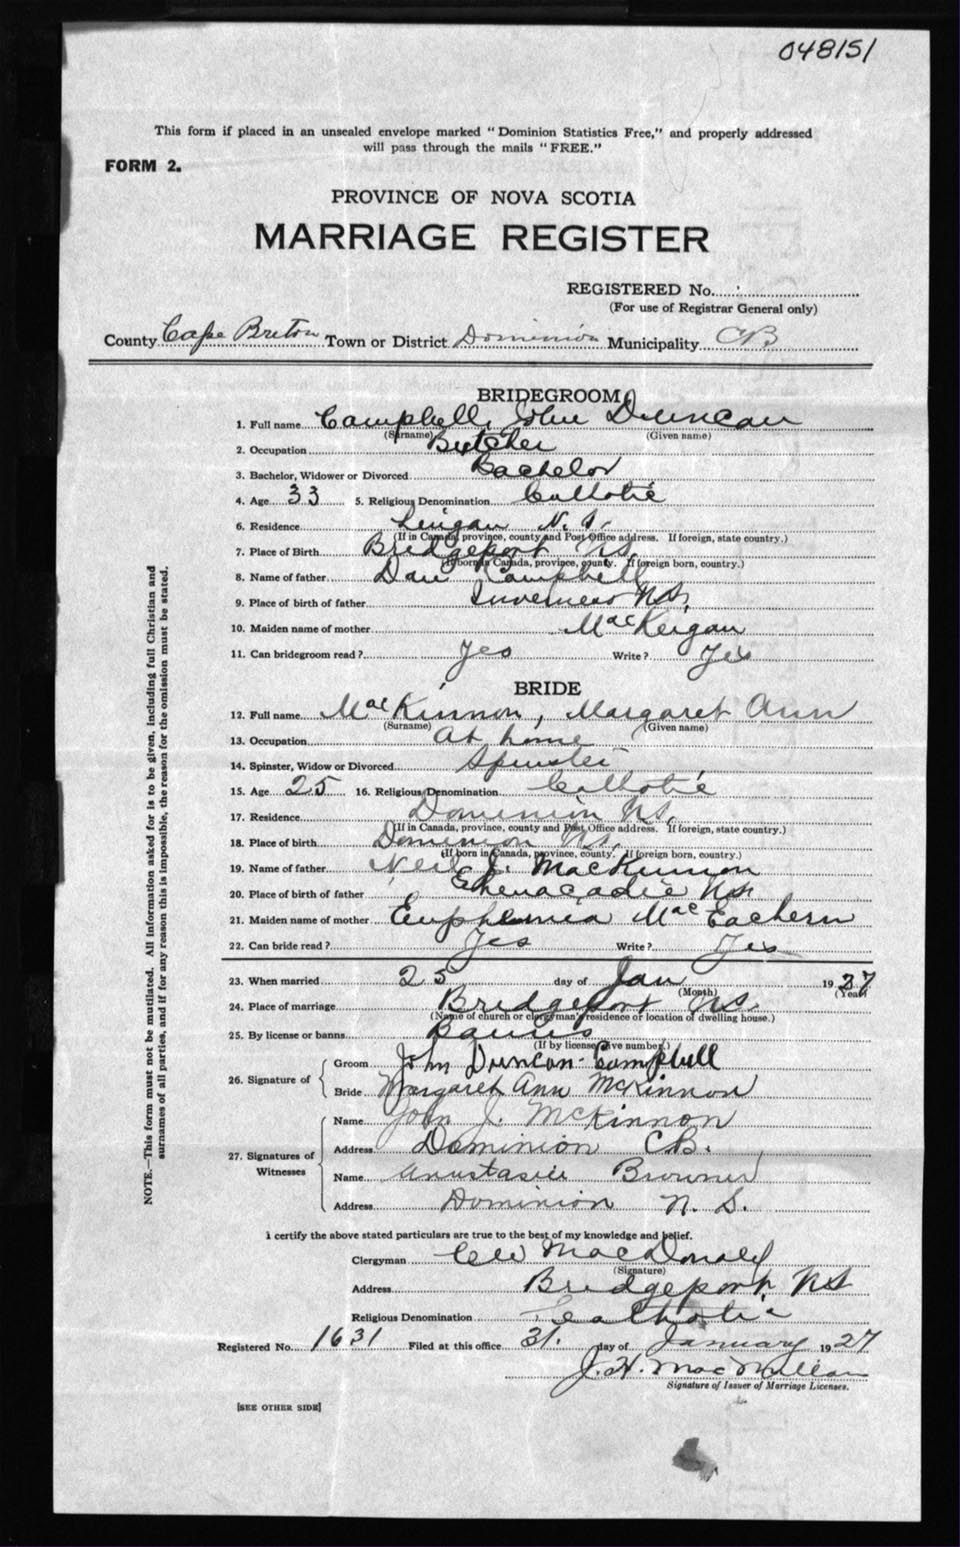 048151
This form if placed in an unsealed envelope marked "Dominion Statistics Free," and properly addressed
will pass through the mails "FREE."
FORM 2.
PROVINCE OF NOVA SCOTIA
MARRIAGE REGISTER
REGISTERED No.
(For use of Registrar General only)
County Cape Breton Town or District Dominion Municipality CB
BRIDEGROOM
1. Full name Campbell, John Duncan
(Surname) (Given name)
2. Occupation Butcher
3. Bachelor, Widower or Divorced Bachelor
4. Age 33 5. Religious Denomination Catholic
6. Residence Lingan N.S.
(If in Canada, province, county and Post Office address. If foreign, state country.)
7. Place of Birth Bridgeport NS.
(If born in Canada, province, county. If foreign born, country.)
8. Name of father Dan Campbell
9. Place of birth of father Inverness NS.
10. Maiden name of mother MacKeigan
11. Can bridegroom read? Yes Write? Yes
BRIDE
12. Full name MacKinnon, Margaret Ann
(Surname) (Given name)
13. Occupation At home
14. Spinster, Widow or Divorced Spinster
15. Age 25 16. Religious Denomination Catholic
17. Residence Dominion NS.
(If in Canada, province, county and Post Office address. If foreign, state country.)
18. Place of birth Dominion NS.
(If born in Canada, province, county. If foreign born, country.)
19. Name of father Neil J. MacKinnon
20. Place of birth of father Shenacadie NS
21. Maiden name of mother Euphemia MacEachern
22. Can bride read? Yes Write? Yes
23. When married 25 day of Jan 1927
(Month) (Year)
24. Place of marriage Bridgeport NS.
(Name of church or clergyman's residence or location of dwelling house.)
25. By license or banns Banns
(If by license give number.)
26. Signature of Groom John Duncan Campbell
Bride Margaret Ann McKinnon
27. Signatures of Witnesses Name John J. McKinnon
Address Dominion CB.
Name Browner
Address Dominion N. S.
I certify the above stated particulars are true to the best of my knowledge and belief.
Clergyman MacDonald
(Signature)
Address Bridgeport, NS
Religious Denomination Catholic
Registered No. 1631 Filed at this office 31. day of January 1927
J. H. MacMillan
Signature of Issuer of Marriage Licenses.
[SEE OTHER SIDE]
NOTE.—This form must not be mutilated. All information asked for is to be given, including full Christian and
surnames of all parties, and if for any reason this is impossible, the reason for the omission must be stated.